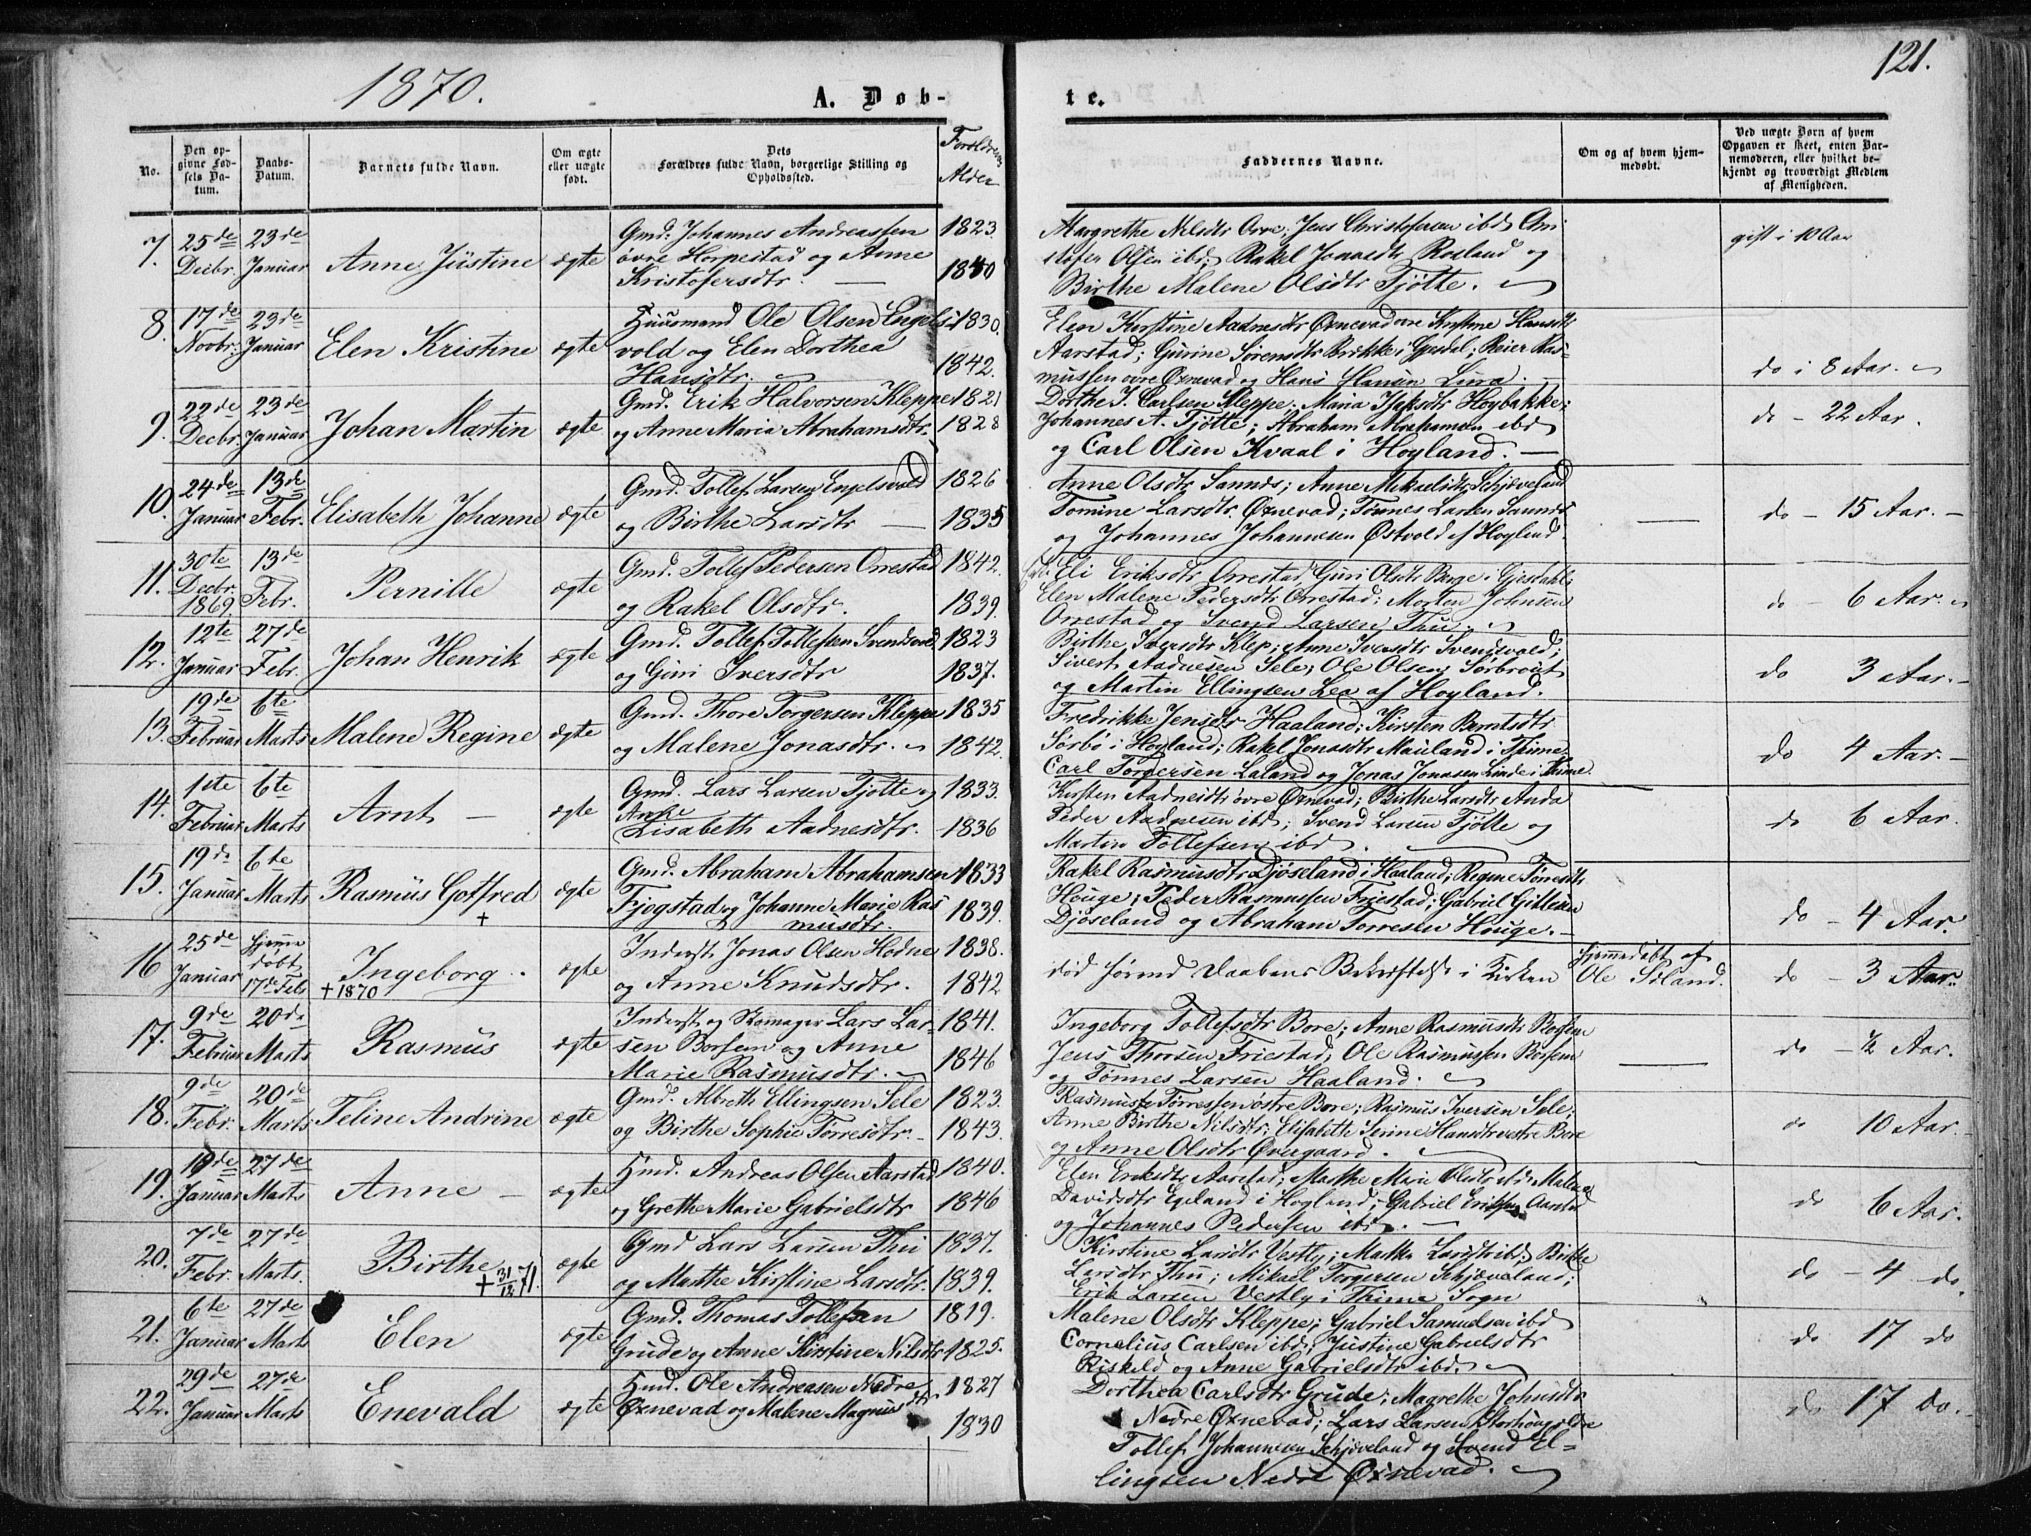 1870.
121.
A. Døb-
te.
No.
Den op-
givne Fød-
sels Da-
tum.
Daabs-
Datum.
Barnets fulde Navn.
Om ægte
eller uægte
født.
Dets
Forældres fulde Navn, borgerlige Stilling og
Opholdssted.
Forældrenes
Alder
Faddernes Navne.
Om og af hvem hjem-
medøbt.
Ved uægte Børn af hvem
Opgaven er skeet, enten Bar-
nemoderen, eller hvilket be-
kjendt og troværdigt Medlem
af Menigheden.
7.
25de
Decbr.
23de
Januar
Anne Jüstine
ægte
Gmd. Johannes Andreassen
øvre Horpestad og Anne
Kristofersdtr.
1823
1840
Margrethe Nilsdtr Orre; Jens Christofersen ibd Chri-
stofer Olsen ibd; Rakel Jonasdtr Roeland og
Birthe Malene Olsdtr Tjøtte.
gift i 10 Aar
8.
17de
Novbr.
23de
Januar
Elen Kristine
ægte
Huusmand Ole Olsen Engels-
vold og Elen Dorthea
Hansdtr.
1830.
1842.
Elen Kirstine Aadnesdtr Øxnevad øvre Kirstine Hansdtr
Aarstad; Gurine Sørensdtr Brekke i Gjesdal; Reier Ras-
mussen øvre Øxnevad og Hans Hansen Lura.
do i 8 Aar.
9.
22de
Decbr.
23de
Januar
Johan Martin
ægte
Gmd. Erik Halvorsen Kleppe
og Anne Maria Abrahamsdtr.
1821
1828
Dorthe J. Carlsen Kleppe; Maria Isaksdtr Høybakke;
Johannes A. Tjøtte; Abraham Abrahamsen ibd
og Carl Olsen Kvaal i Høyland.
do - 22 Aar.
10.
24de
Januar
13de
Febr.
Elisabeth Johanne
ægte
Gmd. Tollef Larsen Engelsvold
og Birthe Larsdtr
1826
1835
Anne Olsdtr Sannes; Anne Mikaelsdtr Schjæveland
Tomine Larsdtr. Øxnevad; Tønnes Larsen Sannes
og Johannes Johannesen Østvold af Høyland
do - 15 Aar.
11.
30te
Decbr.
1869
13de
Febr.
Pernille
ægte
Gmd. Tollef Pedersen Orrestad
og Rakel Olsdtr.
1842.
1839.
Eli Eriksdtr Orrestad; Guri Olsdtr Berge i Gjesdahl;
Elen Malene Pedersdtr Orrestad; Morten Johnsen
Orrestad og Svend Larsen Thu.
do - 6 Aar.
12.
12te
Januar
27de
Febr.
Johan Henrik
ægte
Gmd. Tollef Tollefsen Svendsvold
og Guri Iversdtr
1823
1837.
Birthe Iversdtr Klep; Anne Iversdtr Svendsvold;
Sivert Aadnesen Sele; Ole Olsen Sørbrøit
og Martin Ellingsen Lea af Høyland.
do 3 Aar.
13.
19de
Februar
6te
Marts
Malene Regine
ægte
Gmd. Thore Torgersen Kleppe
og Malene Jonasdtr.
1835
1842.
Fredrikke Jensdtr Haaland; Kirsten Berntsdtr
Sørbø i Høyland; Rakel Jonasdtr Mauland i Thime
Carl Torgersen Laland og Jonas Jonasen Linde i Thime.
do 4 Aar.
14.
1ste
Februar
6te
Marts
Arnt
ægte
Gmd. Lars Larsen Tjøtte og
Anne
Lisabeth Aadnesdtr.
1833.
1836
Kirsten Aadnesdtr øvre Øxnevad; Birthe Larsdtr Anda
Peder Aadnesen ibd; Svend Larsen Tjøtte og
Martin Tollefsen ibd.
do 6 Aar.
15.
19de
Januar
6te
Marts
Rasmus Gotfred
+
ægte
Gmd. Abraham Abrahamsen
Fjogstad og Johanne Marie Ras
musdtr.
1833
1839.
Rakel Rasmusdtr Djøseland i Haaland; Regine Tørresdtr
Houge; Peder Rasmussen Friestad; Gabriel Gittlesen
Djøseland og Abraham Torresen Houge.
do - 4 Aar.
16
25de
Januar
Hjemme
døbt
17de Feb
Ingeborg.
+ 1870
ægte
Inderst Jonas Olsen Hodne
og Anne Knudsdtr.
1838.
1842
død førend Daabens Bekræftelse i Kirken
Hjemmedøbt af
Ole Idland.
do - 3 Aar.
17.
9de
Februar
20de
Marts
Rasmus
ægte
Inderst og Skomager Lars Lar-
sen Borsem og Anne
Marie Rasmusdtr.
1841.
1846
Ingeborg Tollefsdtr Bore; Anne Rasmusdtr Borsem
Jens Thorsen Friestad; Ole Rasmussen Borsem
og Tønnes Larsen Haaland.
do - ½ Aar.
18.
9de
Febr.
20de
Marts
Teline Andrine
ægte
Gmd. Albreth Ellingsen Sele
og Birthe Sophie Tørresdtr.
1823.
1843.
Rasmus Tørressen østre Bore; Rasmus Iversen Sele;
Anne Birthe Nilsdtr; Elisabeth Serine Hansdtr vestre Bore
og Anne Olsdtr Øvregaard.
do 10 Aar.
19.
19de
Januar
27de
Marts
Anne
ægte
Hmd. Andreas Olsen Aarstad
og Grethe Marie Gabrielsdtr
1840.
1846
Elen Eriksdtr Aarstad; Marthe Marie Olsdtr ibd; Malene
Davidsdtr Egeland i Høyland; Gabriel Eriksen Aarstad
og Johannes Pedersen ibd.
do 6 Aar.
20.
7de
Febr.
27de
Marts.
Birthe
+ 31/12 71.
ægte
Gmd Lars Larsen Thu
og Marthe Kirstine Larsdtr.
1837.
1839.
Kirstine Larsdtr Vestly; Malka Larsdtr ibd; Birthe
Larsdtr Thu; Mikael Torgersen Schjæveland;
Erik Larsen Vestly i Thime Sogn
do - 4 do.
21.
6te
Januar
27de
Marts
Elen
ægte
Gmd. Thomas Tollefsen
Grude og Anne Kirstine Nilsdtr
1819.
1825.
Malene Olsdtr Kleppe; Gabriel Samuelsen ibd
Cornelius Carlsen ibd; Justine Gabrielsdtr
Riskeld og Anne Gabrielsdtr ibd.
do 17 do
22.
29de
Januar
27de
Marts
Enevald
ægte
Hmd. Ole Andreasen Nedre
Øxnevad og Malene Magnusdtr
1827
1830
Dorthea Carlsdtr Grude; Magrethe Johnsdtr
Nedre Øxnevad; Lars Larsen Storhoug
Tollef Johannesen Schjæveland og Svend El-
lingsen Nedre Øxnevad.
do 17 Do.